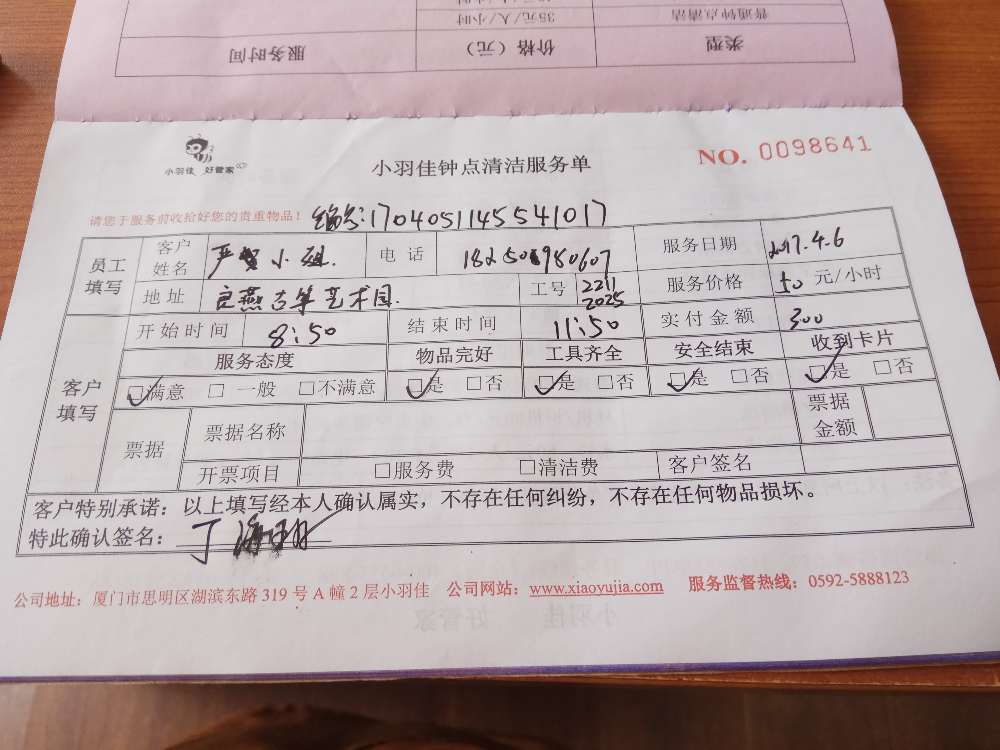 35元/人/小时
普通钟点清洁
类型
价格（元）
服务时间
小羽佳 好管家
小羽佳钟点清洁服务单
NO. 0098641
请您于服务前收拾好您的贵重物品！
编号:1704051145541017
员工填写
客户姓名
严 小姐.
电 话
服务日期
2017.4.6
地 址
古筝艺术园.
工号
2211
2025
服务价格
50 元/小时
客户填写
开始时间
8:50
结束时间
11:50
实付金额
300
服务态度
物品完好
工具齐全
安全结束
收到卡片
□满意 □ 一般 □不满意
□是 □否
□是 □否
□是 □否
□是 □否
票据
票据名称
票据金额
开票项目
□服务费 □清洁费
客户签名
客户特别承诺：以上填写经本人确认属实，不存在任何纠纷，不存在任何物品损坏。
特此确认签名：丁海
公司地址：厦门市思明区湖滨东路 319 号 A 幢 2 层小羽佳 公司网站：www.xiaoyujia.com 服务监督热线：0592-5888123
小羽佳 好管家